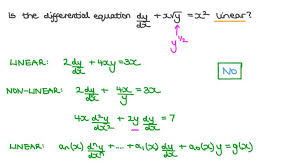 Is the differential equation dy/dx + x√y = x² linear?
y^(1/2)
LINEAR: 2 dy/dx + 4xy = 3x
No
NON-LINEAR: 2 dy/dx + 4x/y = 3x
4x d²y/dx² + 2y dy/dx = 7
LINEAR: aₙ(x) dⁿy/dxⁿ + .... + a₁(x) dy/dx + a₀(x) y = g(x)